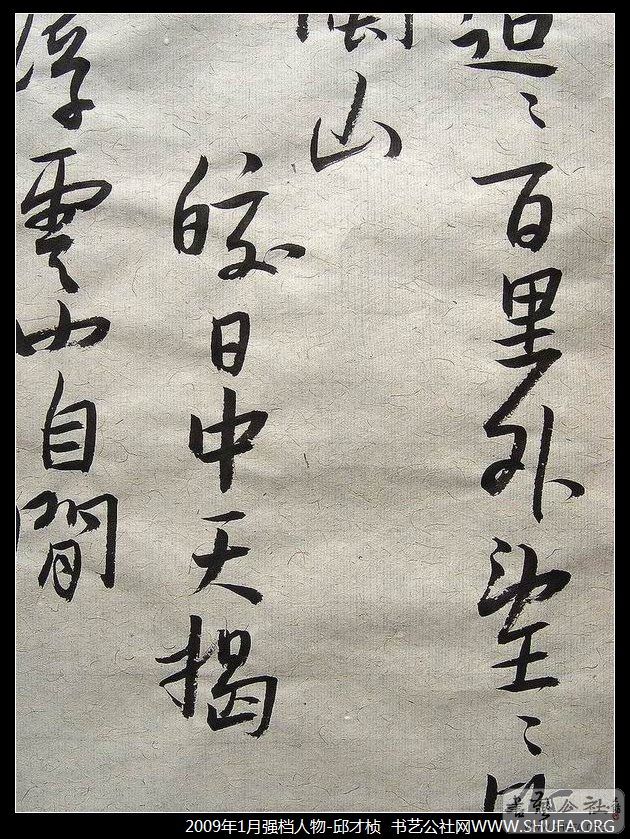 迢〻百里外望〻
山
皎日中天揭
浮雲山自閒
书艺公社
2009年1月强档人物-邱才桢 书艺公社网WWW.SHUFA.ORG